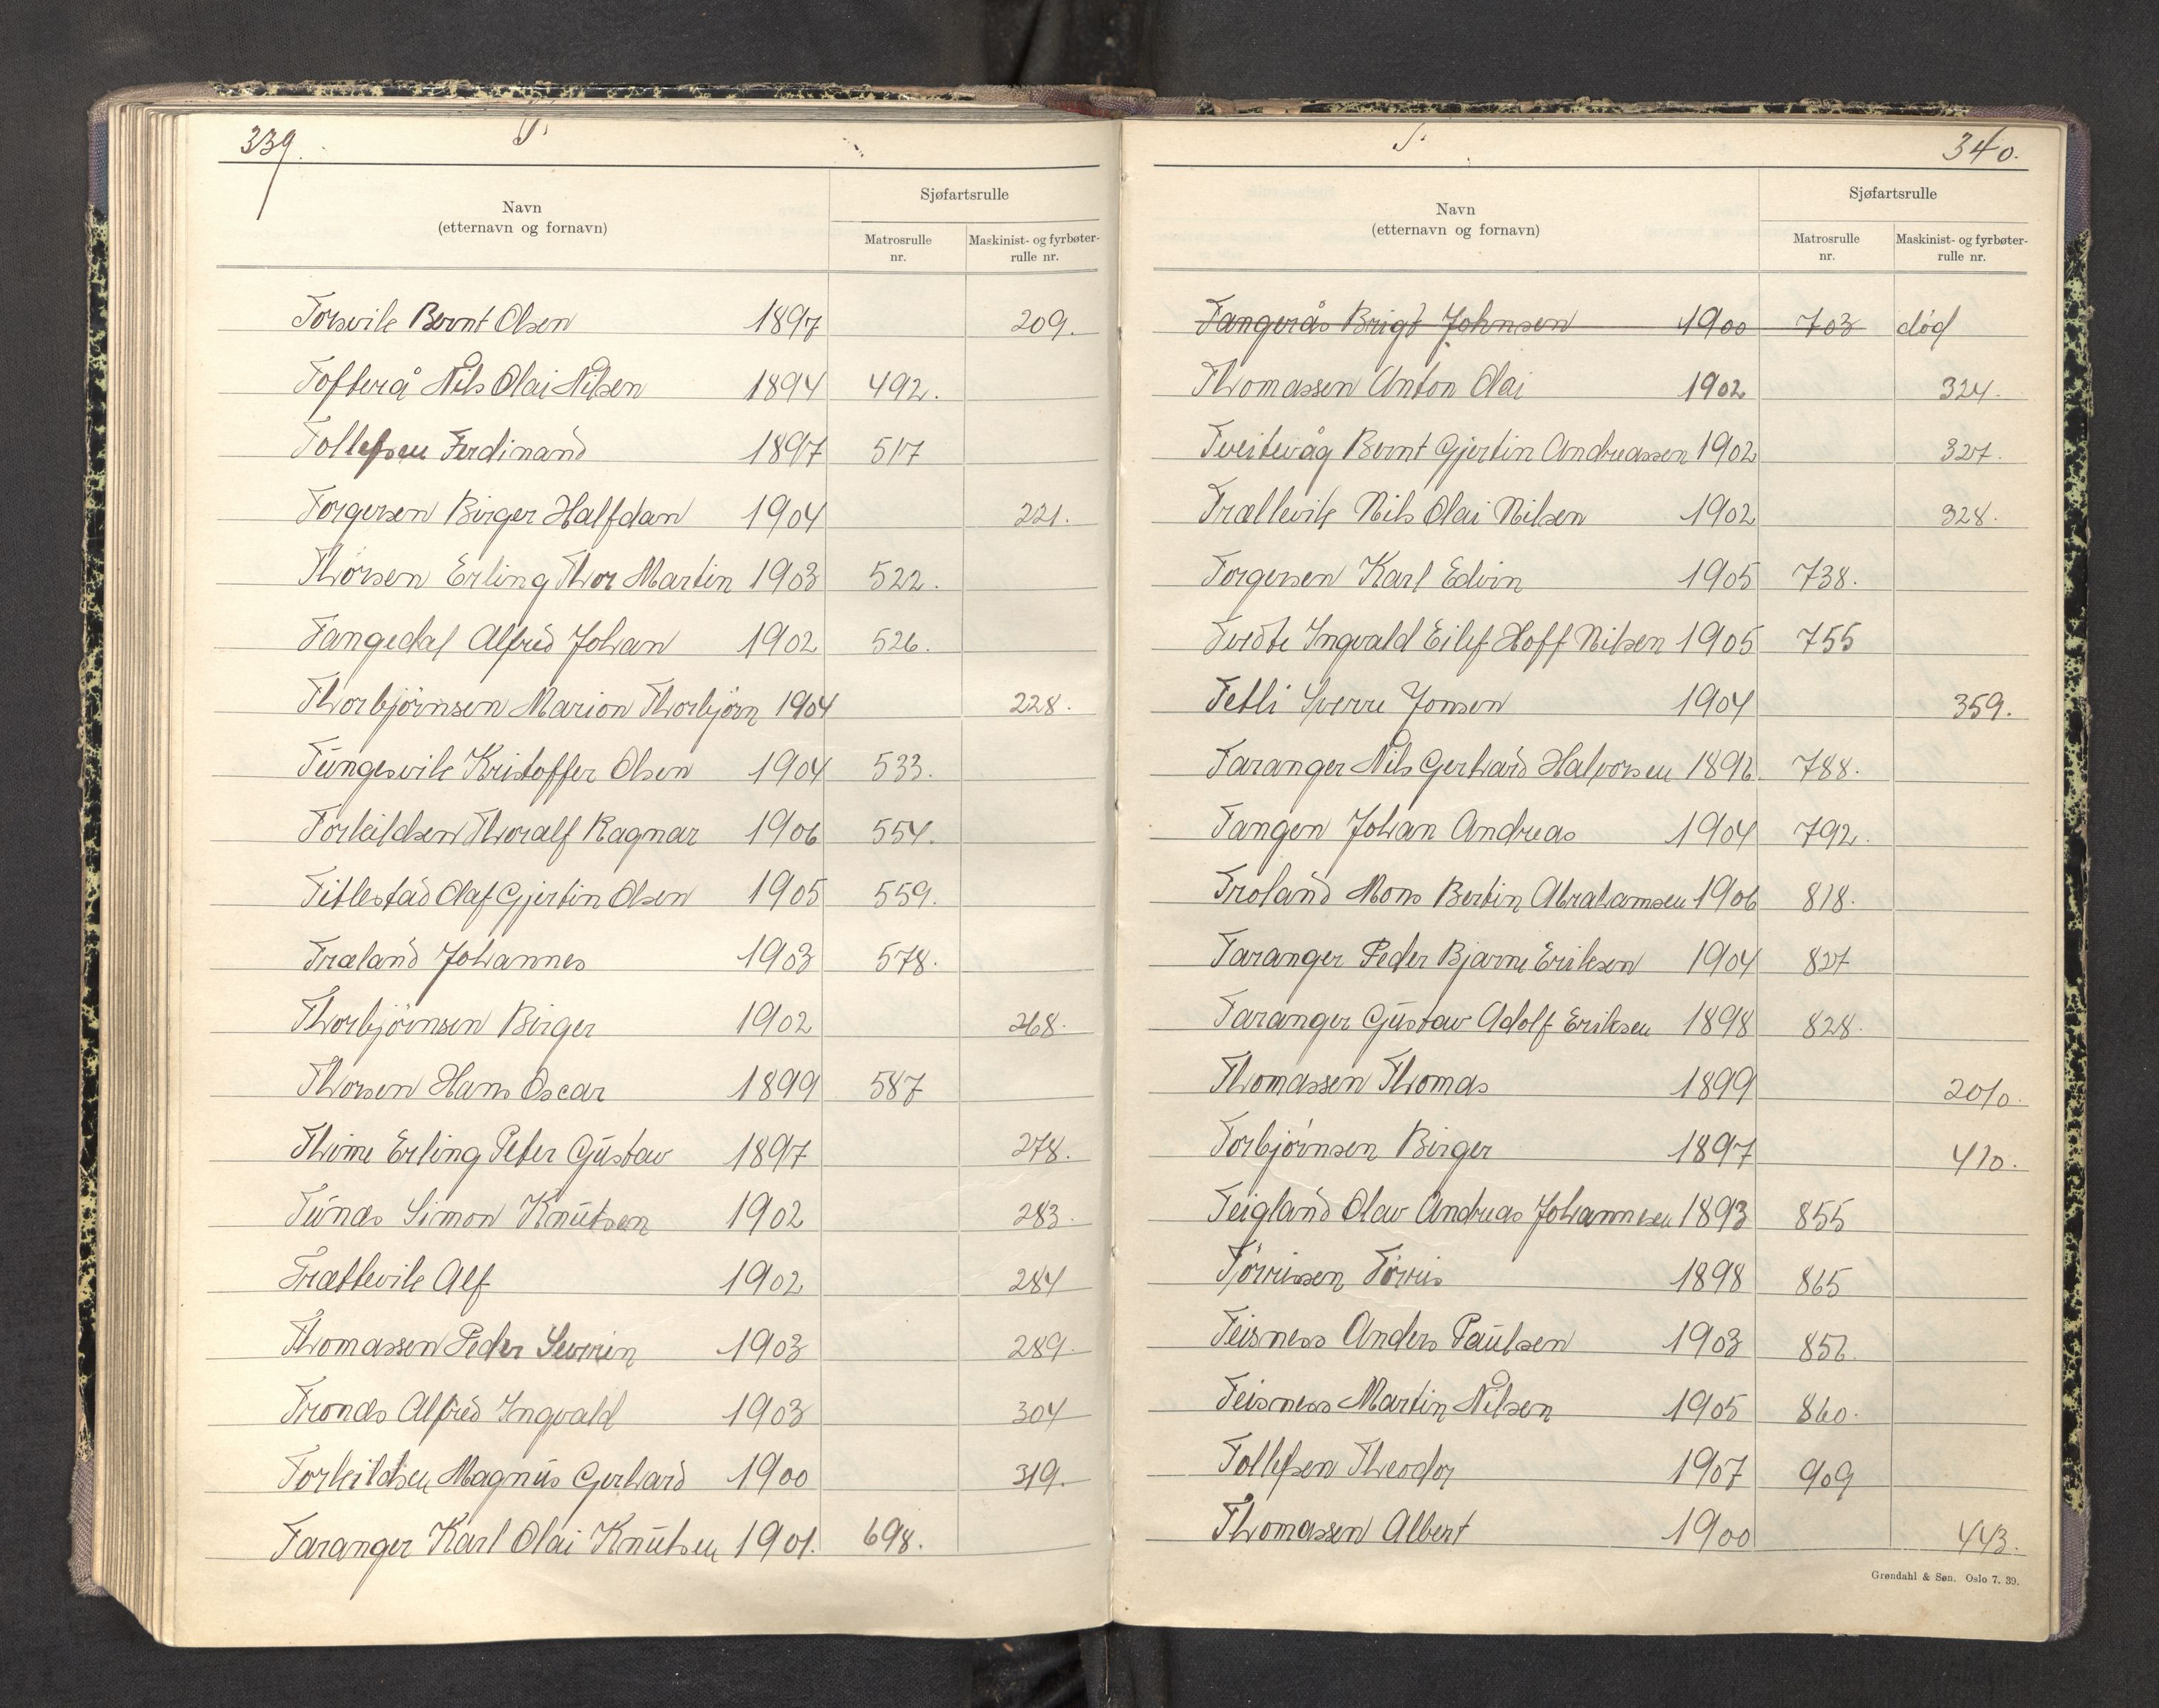 339. T.
Navn
(etternavn og fornavn)
Sjøfartsrulle
Matrosrulle nr.
Maskinist- og fyrbøter-rulle nr.
Torsvik Bernt Olsen 1897 209.
Tofterå Nils Olai Nilsen 1894 492.
Tollefsen Ferdinand 1897 517
Torgersen Birger Halfdan 1904 221.
Thorsen Erling Thor Martin 1903 522.
Tangedal Alfred Johan 1902 526.
Thorbjörnsen Marion Thorbjörn 1904 228.
Tungesvik Kristoffer Olsen 1904 533.
Torkildsen Thoralf Ragnar 1906 554.
Titlestad Olaf Gjertin Olsen 1905 559.
Træland Johannes 1903 578.
Thorbjörnsen Birger 1902 268.
Thorsen Hans Oscar 1899 587
Thime Erling Peter Gustav 1897 278.
Tunæs Simon Knutsen 1902 283.
Trættevik Alf 1902 284
Thomassen Peder Severin 1903 289.
Tronæs Alfred Ingvald 1903 304
Torkildsen Magnus Gerhard 1900 319.
Taranger Karl Olai Knutsen 1901. 698.
T. 340.
Navn
(etternavn og fornavn)
Sjøfartsrulle
Matrosrulle nr.
Maskinist- og fyrbøter-rulle nr.
Tangerås Brigt Johnsen 1900 703 død
Thomassen Anton Olai 1902 324.
Tveitevåg Bernt Gjertin Andreassen 1902 327.
Trællevik Nils Olai Nilsen 1902 328.
Torgersen Karl Edvin 1905 738.
Tvedte Ingvald Eilef Hoff Nilsen 1905 755
Tetli Sverre Jonsen 1904 359.
Taranger Nils Gerhard Halvorsen 1896 788.
Tangen Johan Andreas 1904 792.
Troland Mons Bertin Abrahamsen 1906 818.
Taranger Peder Bjarne Eriksen 1904 827
Taranger Gustav Adolf Eriksen 1898 828.
Thomassen Thomas 1899 2010.
Torbjørnsen Birger 1897 410.
Teigland Olav Andreas Johannesen 1893 855
Tørrissen Tørris 1898 865
Teisness Anders Paulsen 1903 856
Teisness Martin Nilsen 1905 860.
Tollefsen Theodor 1907 909
Thomassen Albert 1900 443.
Grøndahl & Søn. Oslo 7. 39.